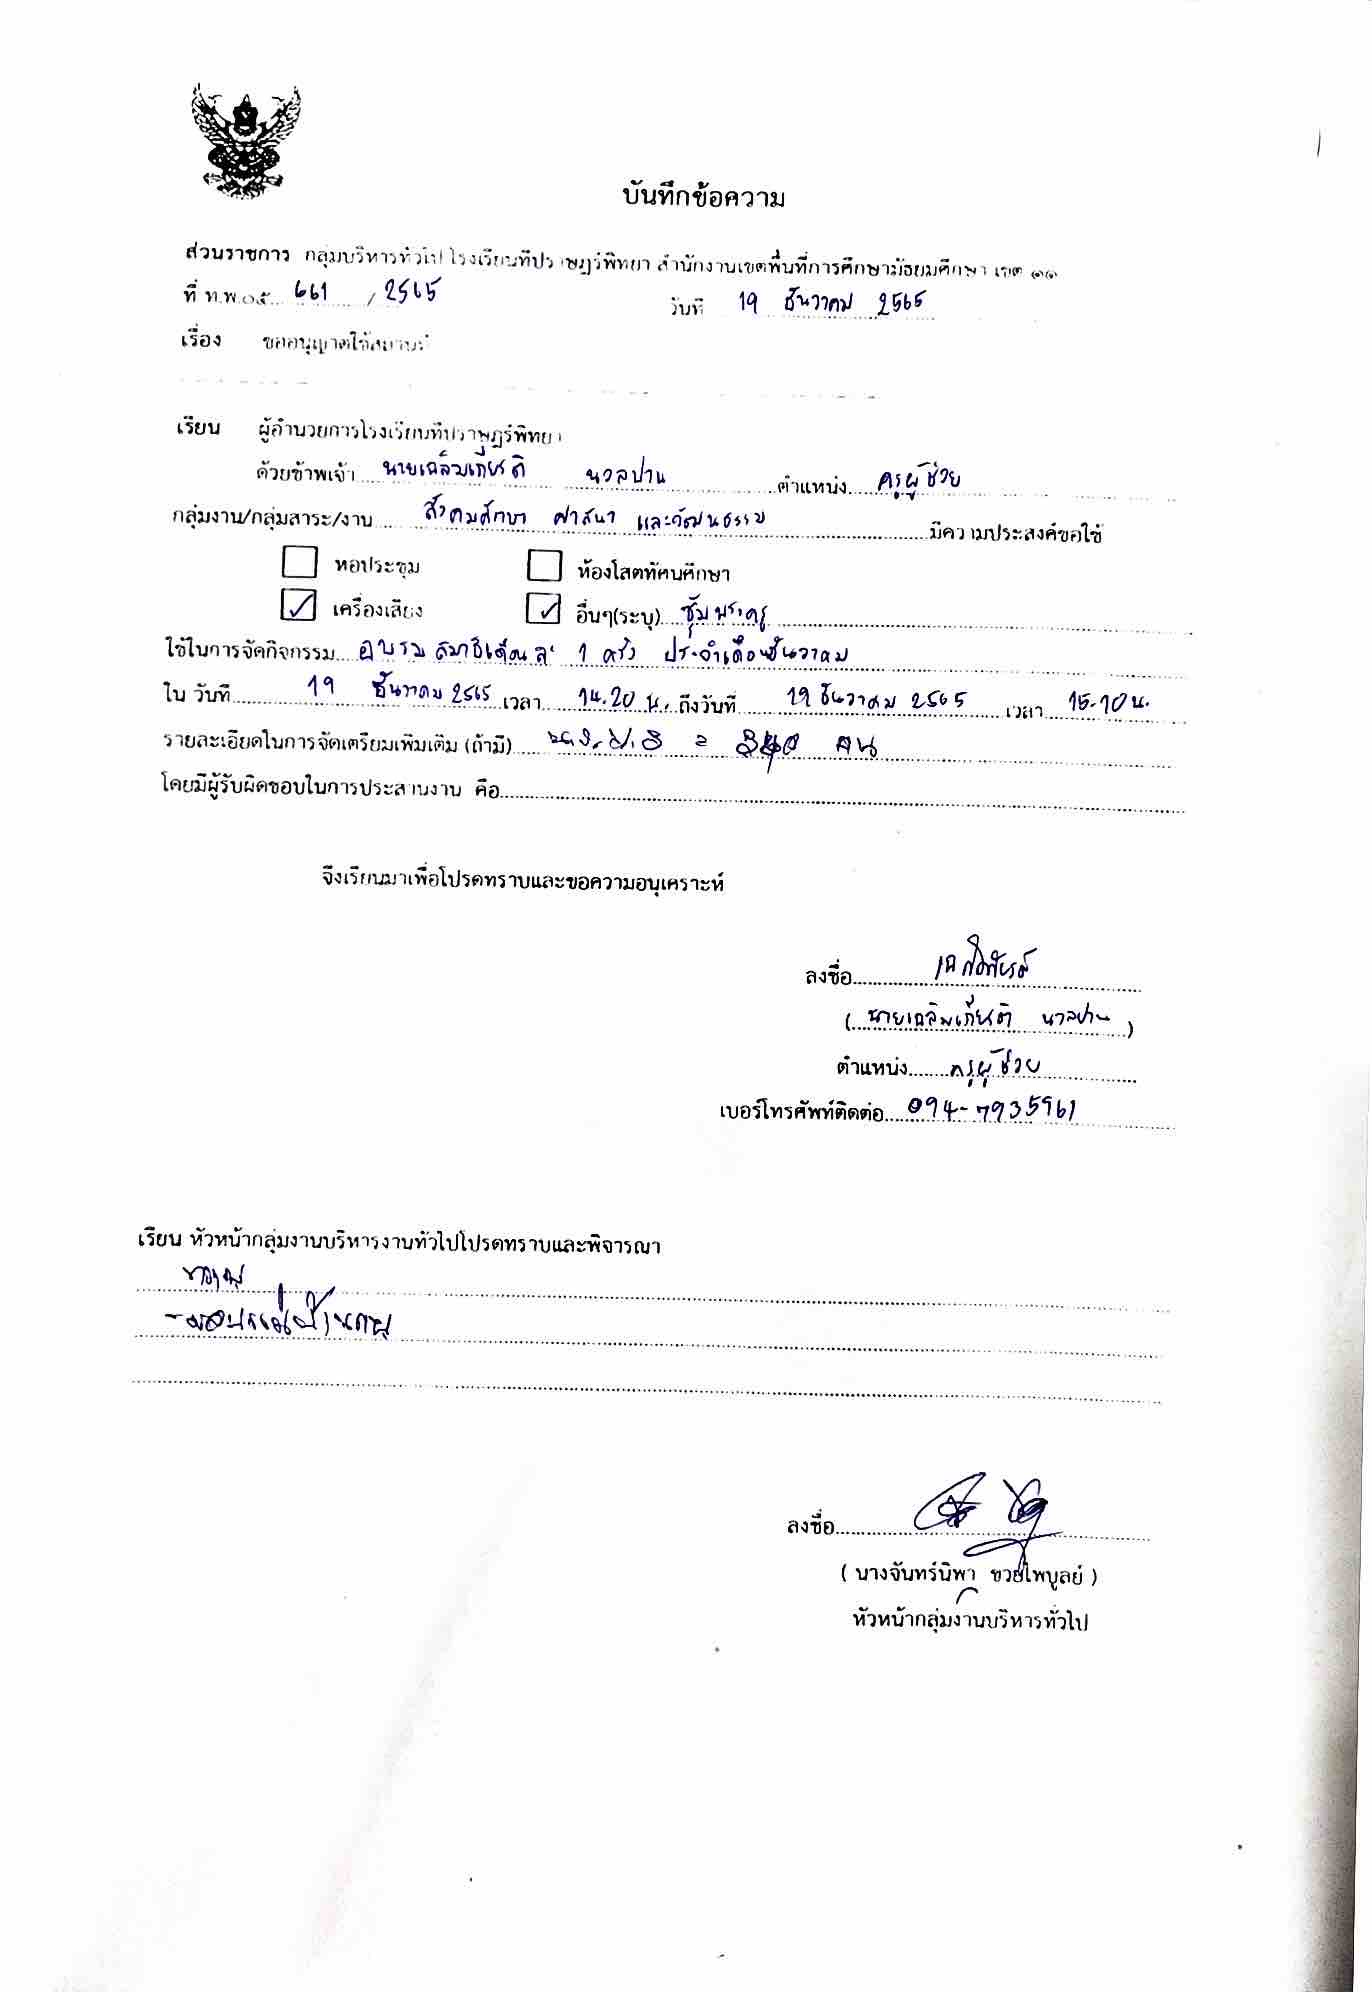 บันทึกข้อความ
ส่วนราชการ กลุ่มบริหารทั่วไป โรงเรียนทีปราษฎร์พิทยา สำนักงานเขตพื้นที่การศึกษามัธยมศึกษา เขต ๑๑
ที่ ท.พ.๐๕... 661 / 2565 วันที่ 19 ธันวาคม 2565
เรื่อง ขออนุญาตใช้สถานที่
เรียน ผู้อำนวยการโรงเรียนทีปราษฎร์พิทยา
ด้วยข้าพเจ้า นายเฉลิมเกียรติ นวลปาน ตำแหน่ง ครูผู้ช่วย
กลุ่มงาน/กลุ่มสาระ/งาน สังคมศึกษา ศาสนา และวัฒนธรรม มีความประสงค์ขอใช้
หอประชุม ห้องโสตทัศนศึกษา
✓ เครื่องเสียง ✓ อื่นๆ(ระบุ) ซุ้มพระครู
ใช้ในการจัดกิจกรรม อบรมสมาธิเดือนละ 1 ครั้ง ประจำเดือนธันวาคม
ใน วันที่ 19 ธันวาคม 2565 เวลา 14.20 น. ถึงวันที่ 19 ธันวาคม 2565 เวลา 15.10 น.
รายละเอียดในการจัดเตรียมเพิ่มเติม (ถ้ามี) คน
โดยมีผู้รับผิดชอบในการประสานงาน คือ
จึงเรียนมาเพื่อโปรดทราบและขอความอนุเคราะห์
ลงชื่อ เฉลิมเกียรติ
( นายเฉลิมเกียรติ นวลปาน )
ตำแหน่ง ครูผู้ช่วย
เบอร์โทรศัพท์ติดต่อ 094-7935961
เรียน หัวหน้ากลุ่มงานบริหารงานทั่วไปโปรดทราบและพิจารณา
ทราบ
ลงชื่อ
( นางจันทร์นิพา ขวยไพบูลย์ )
หัวหน้ากลุ่มงานบริหารทั่วไป